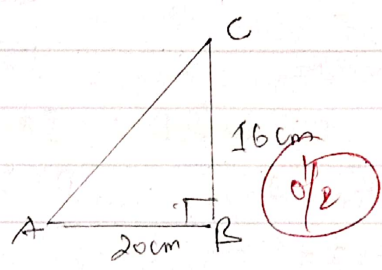 C
16cm
0/2
A
B
20cm